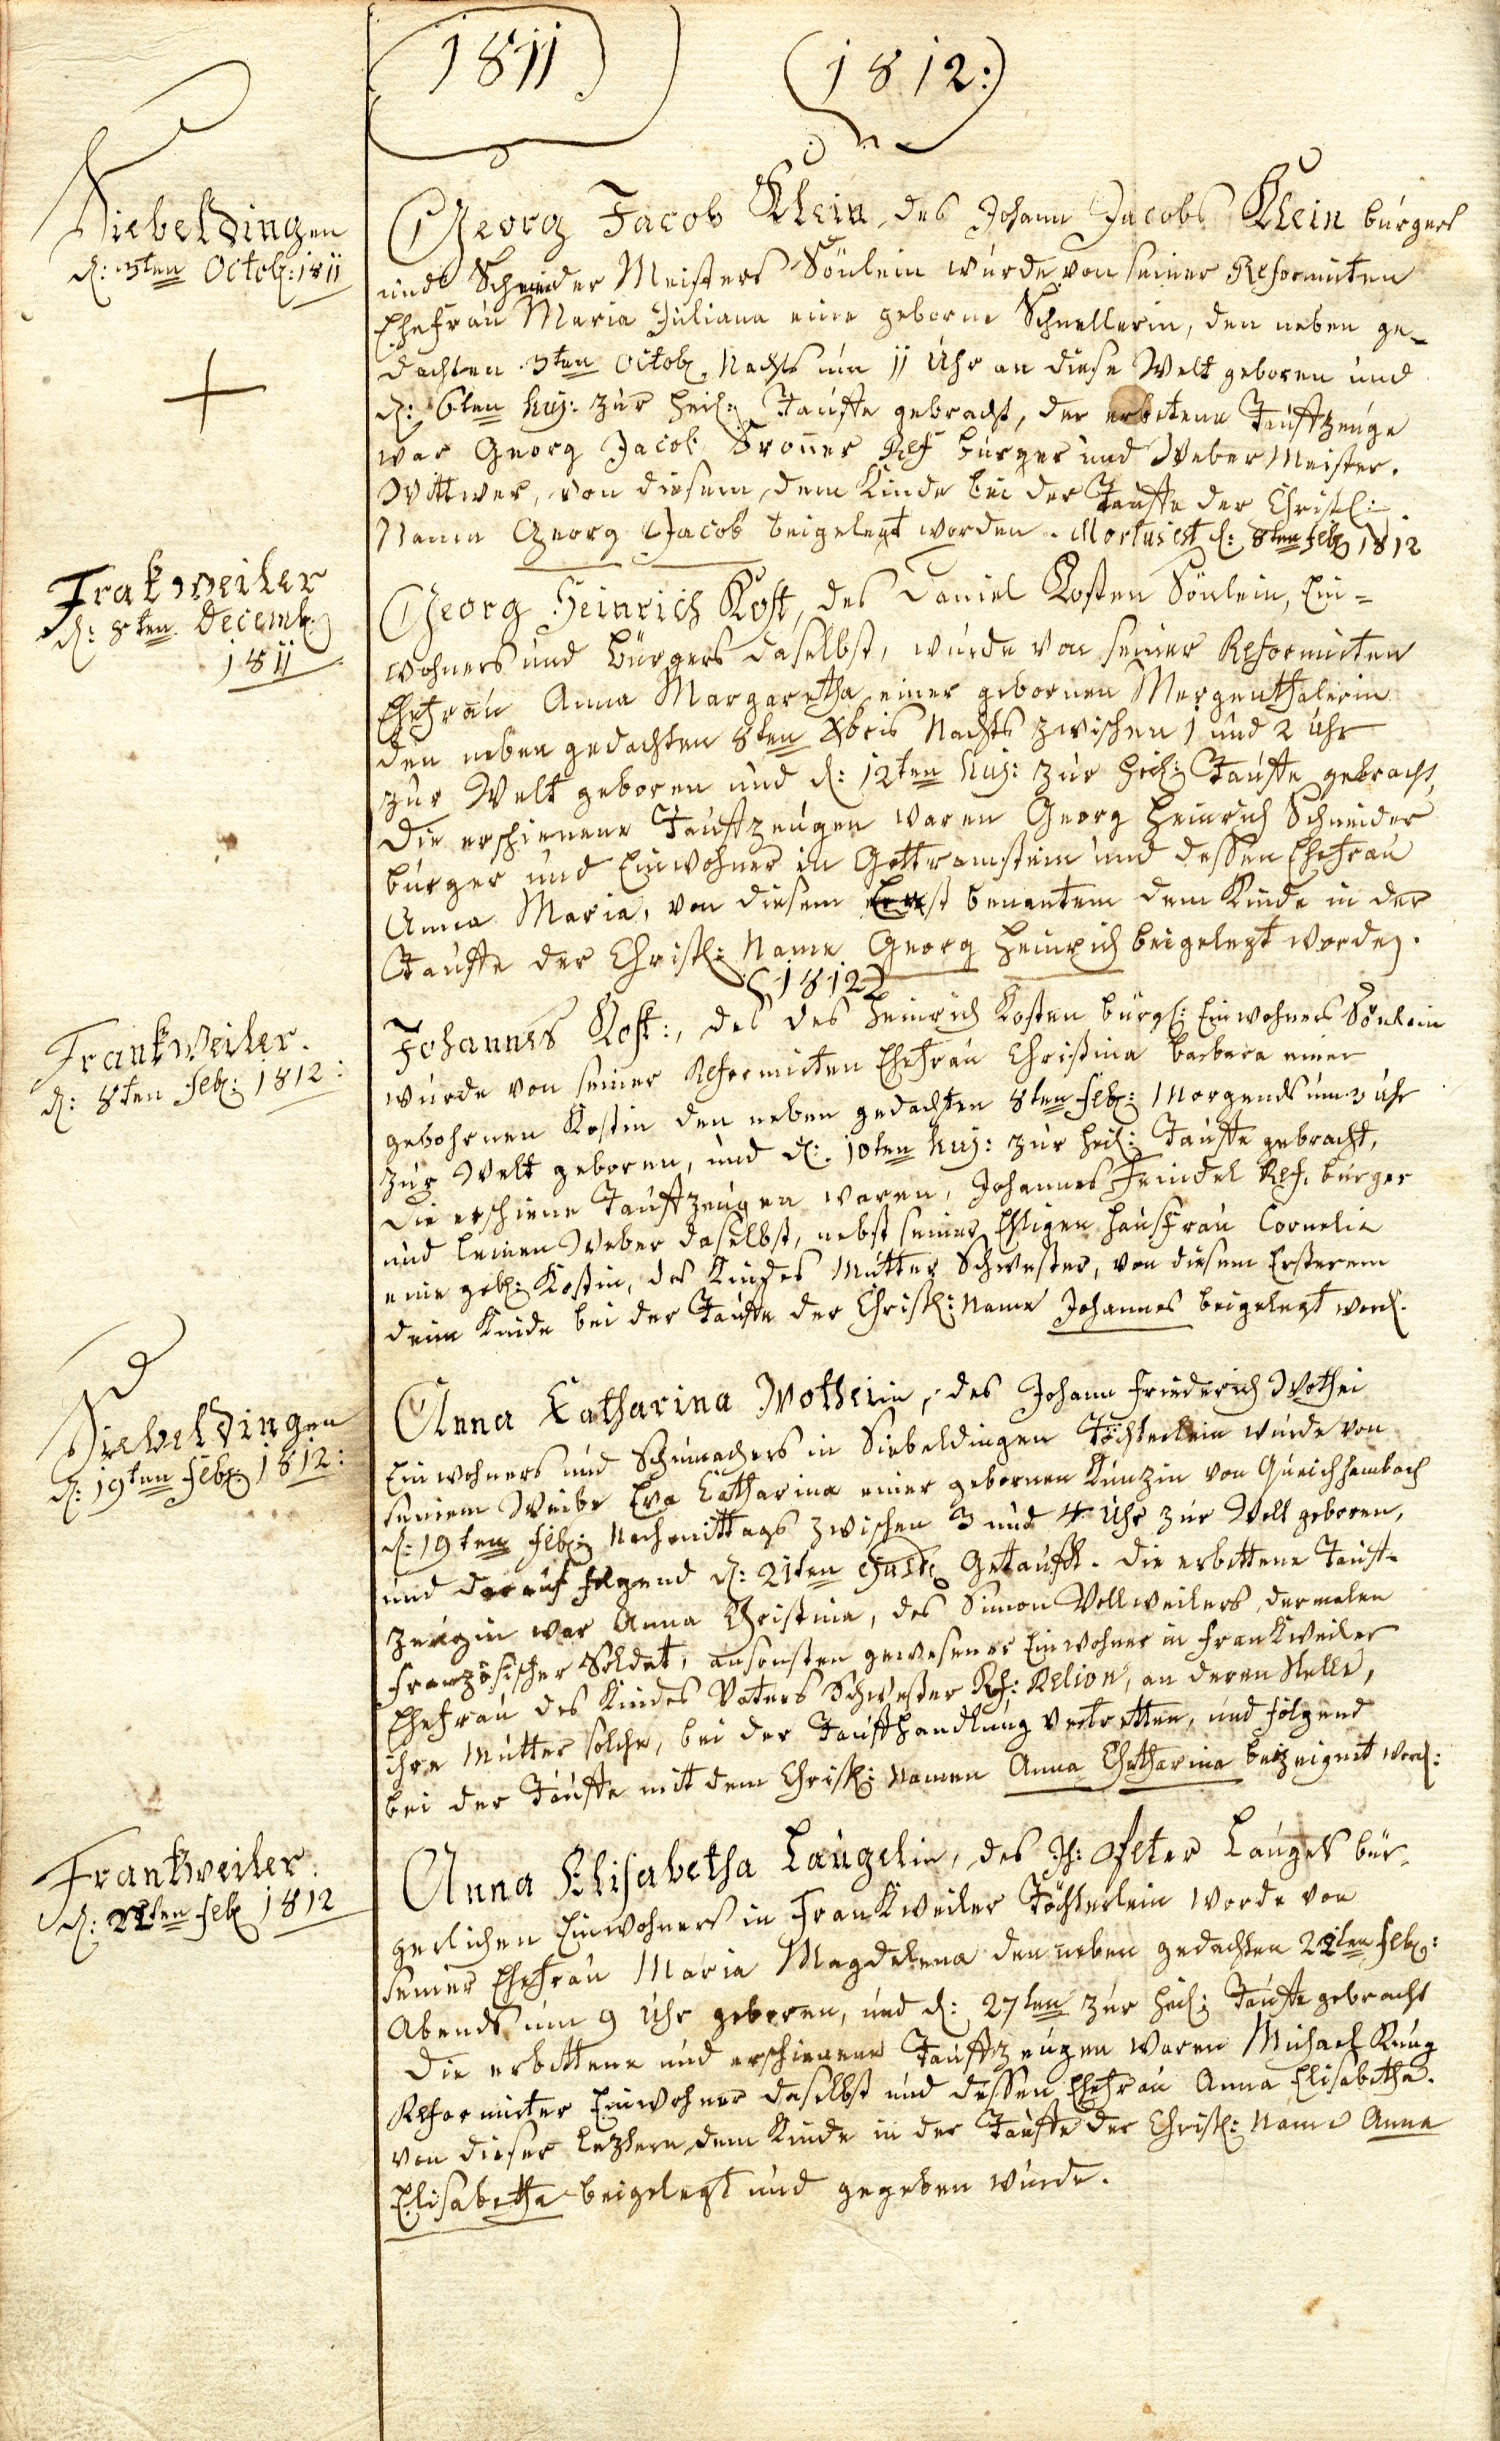 1811
1812:
Siebeldingen
d: 3ten Octob: 1811
Georg Jacob Klein, des Johann Jacobs Klein bürgers
und Schneider Meisters Sönlein wurde von seiner Reformirten
Ehefrau Maria Juliana eine geborne Schnellerin, den neben ge-
dachten 3ten Octob. Nachts um 11 Uhr an diese Welt geboren und
d: 6ten huj: zur heil: Tauffe gebracht, der erbetene Tauffzeuge
war Georg Jacob Ref bürger und Weber Meister.
Wittwer, von diesem dem Kinde bei der Tauffe der Christl:
Name Georg Jacob beigelegt worden. Mortus est d: 8ten feb 1812
Frakweiler
d: 8ten Decemb:
1811
Georg Heinrich Kost, des Daniel Kosten Sönlein, Ein=
wohners und Bürgers daselbst, wurde von seiner Reformirten
Ehefrau Anna Margaretha einer gebornen Mergenthalerin
den neben gedachten 8ten Xbris Nachts zwischen 1 und 2 Uhr
zur Welt geboren und d: 12ten huj: zur heil: Tauffe gebracht,
Die erschienene Tauffzeugen waren Georg Heinrich Schneider
bürger und Einwohner in Gottramstein und dessen Ehefrau
Anna Maria, von diesem Erst benantem dem Kinde in der
Tauffe der Christl: Name Georg Heinrich beigelegt worden.
(1812)
Frankweiler.
d: 8ten feb: 1812:
Johannes Kost:, des des Heinrich Kosten bürgl: Einwohners Sönlein
wurde von seiner Reformirten Ehefrau Christina barbara einer
gebohrnen Kostin den neben gedachten 8ten feb: Morgends um 3 Uhr
zur Welt geboren, und d: 10ten huj: zur heil: Tauffe gebracht,
Die erschiene Tauffzeugen waren, Johannes Feindel Ref. bürger
und Leinen Weber daselbst, nebst seiner Ehligen Hausfrau Cornelia
eine geb: Kostin, des Kindes Mutter Schwester, von diesem Ersterem
dem Kinde bei der Tauffe der Christl: Name Johannes beigelegt word.
Siebeldingen
d: 19ten feb: 1812:
Anna Katharina Wotheiin, des Johann Friederich Wothei
Einwohners und Schumachers in Siebeldingen Töchterlein wurde von
seinem Weibe Eva Catharina einer gebornen Kunzin von Queichhambach
d: 19ten feb: Nachmittags zwischen 3 und 4 Uhr zur Welt geboren,
und darauf folgend d: 21ten Getaufft. Die erbettene Tauff-
zeugin war Anna Christina, des Simon Vollweilers, dermalen
französischer Soldat, ansonsten gewesener Einwohner in Frankweiler
Ehefrau des Kindes Vaters Schwester Ref: Relion, an deren Stelle,
ihre Mutter solche, bei der Tauffhandlung vertretten, und folgend
bei der Tauffe mit dem Christl: Namen Anna Chatharina word:
Frankweiler.
d: 22ten feb 1812
Anna Elisabetha Laugelin, des Jh: Peter Lauges bür-
gerlichen Einwohners in Frankweiler Töchterlein worde von
seiner Ehefrau Maria Magdelena den neben gedachten 22ten feb:
Abends um 9 Uhr geboren, und d: 27ten zur heil: Tauffe gebracht
Die erbettene und erschienene Tauffzeugen waren Michael
Reformirter Einwohner daselbst und dessen Ehefrau Anna Elisabetha.
von dieser leztern dem Kinde in der Tauffe der Christl: Name Anna
Elisabetha beigelegt und gegeben wurde.